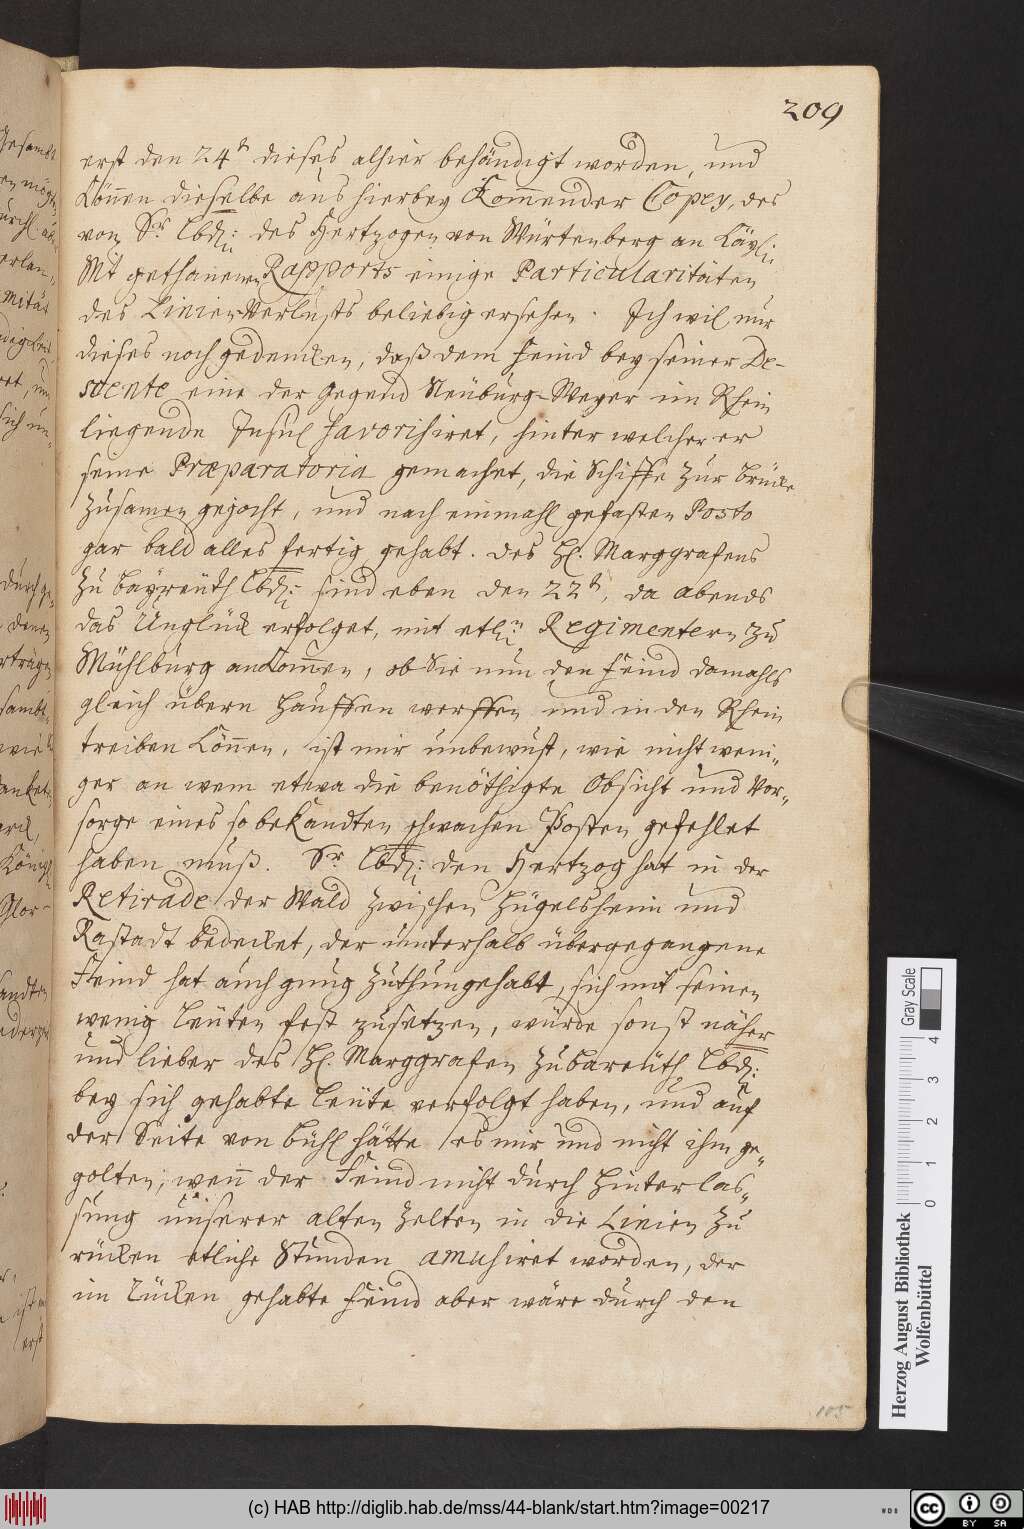 209
erst den 24t dieses alhier behändigt worden, und
können dieselbe aus hierbey kommender Copey, des
von Sr Lbd: des Hertzogen von Würtenberg an Käyl:
Mt gethanenen Rapports einige Particularitäten
des Linien-Verlusts beliebig ersehen. Ich wil nur
dieses noch gedencken, daß dem Feind bey seiner De-
scente eine der Gegend Neüburg-Weyer im Rhein
liegende Insul favorisiret, hinter welcher er
seine Præparatoria gemachet, die Schiffe zur Brücke
zusamen gejocht, und nach einmahl gefasten Posto
gar bald alles fertig gehabt. Des H. Marggrafens
zu Bayreüth Lbd: sind eben den 22t, da abends
das Unglück erfolget, mit etl: Regimentern zu
Mühlburg ankommen, ob Sie nun den Feind domahls
gleich übern Hauffen werffen und in den Rhein
treiben können, ist mir unbewust, wie nicht weni-
ger an wem etwa die benöthigte Obsicht und Vor-
sorge eines so bekandten schwachen Posten gefehlet
haben muß. Sr Lbd: den Hertzog hat in der
Retirade der Wald zwischen Hügelsheim und
Rastadt bedecket, der unterhalb übergegangene
Feind hat auch gnug zuthun gehabt, sich mit seinen
wenig Leüten fest zusetzen, würde sonst näher
und lieber des H. Marggrafen zu Bareüth Lbd:
bey sich gehabte Leüte verfolgt haben, und auf
der Seite von Bühl hätte es mir und nicht ihm ge-
golten; wen̄ der Feind nicht durch Hinterlas-
sung unserer alten Zelten in die Linien zu
rücken etliche Stunden amusiret worden, der
im Rücken gehabte Feind aber wäre durch den
105
Herzog August Bibliothek
Wolfenbüttel
Gray Scale
0 1 2 3 4
(c) HAB http://diglib.hab.de/mss/44-blank/start.htm?image=00217
WDB
cc BY SA